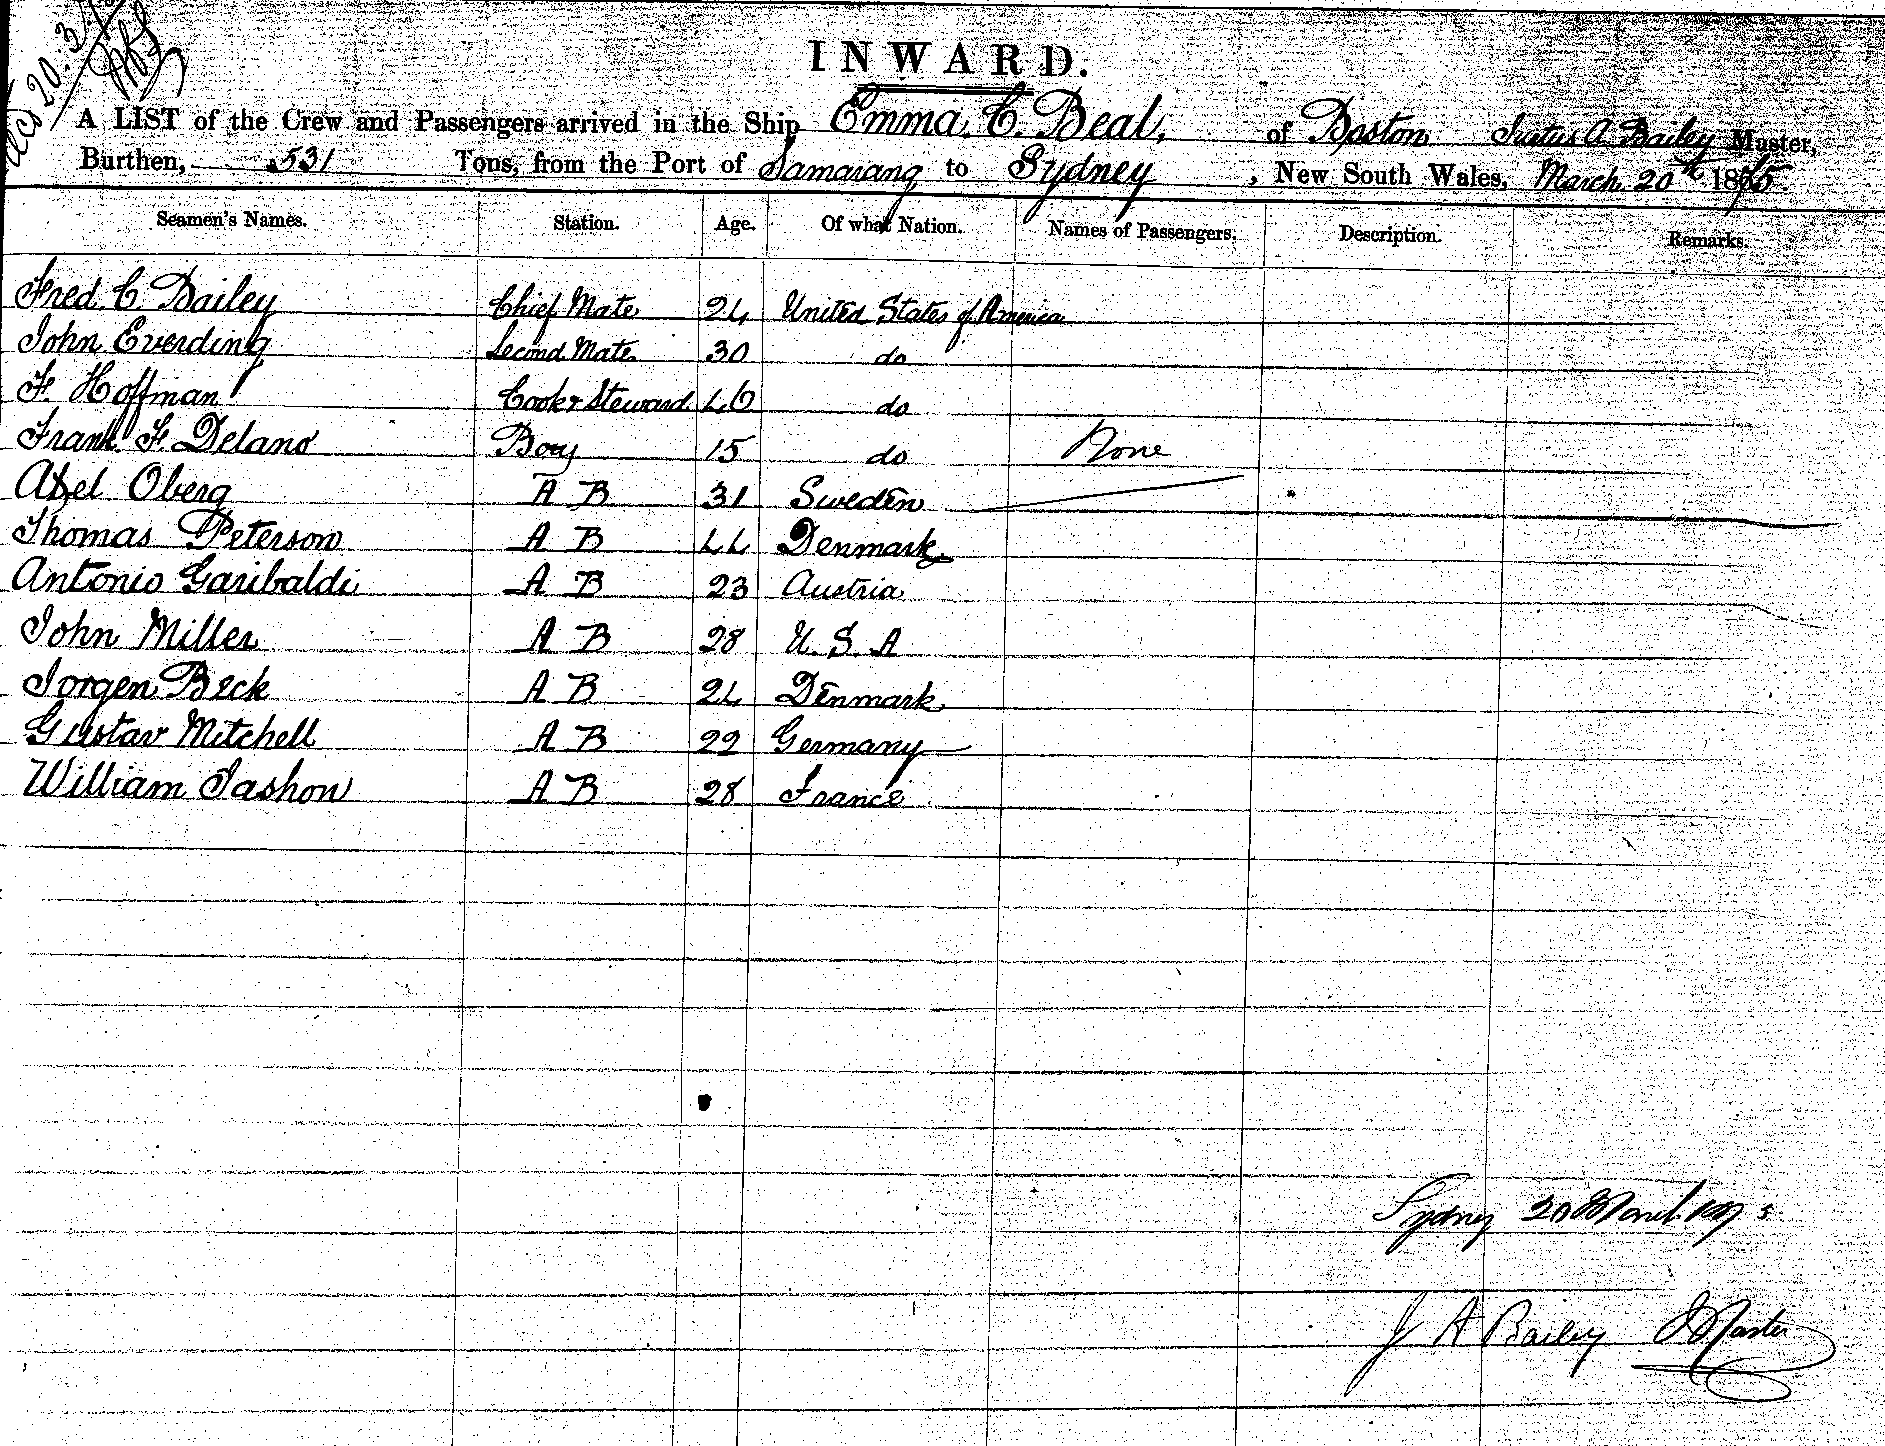 20.3
INWARD.
A LIST of the Crew and Passengers arrived in the Ship Emma. C. Beal, of Boston Justus A. Bailey Master,
Burthen, 531 Tons, from the Port of Samarang to Sydney, New South Wales, March 20th 1875
Seamen's Names. Station. Age. Of what Nation. Names of Passengers. Description. Remarks.
Fred. C. Bailey Chief Mate 24 United States of America
John Everding Second Mate 30 do
F. Hoffman Cook & Steward 46 do
Frank F. Delano Boy 15 do None
Axel Oberg A B 31 Sweden
Thomas Peterson A B 44 Denmark
Antonio Garibaldi A B 23 Austria
John Miller A B 28 U. S. A
Jorgen Beck A B 24 Denmark
Gustav Mitchell A B 22 Germany
William Jashon A B 28 France
Sydney 20 March 1875
J A Bailey Master